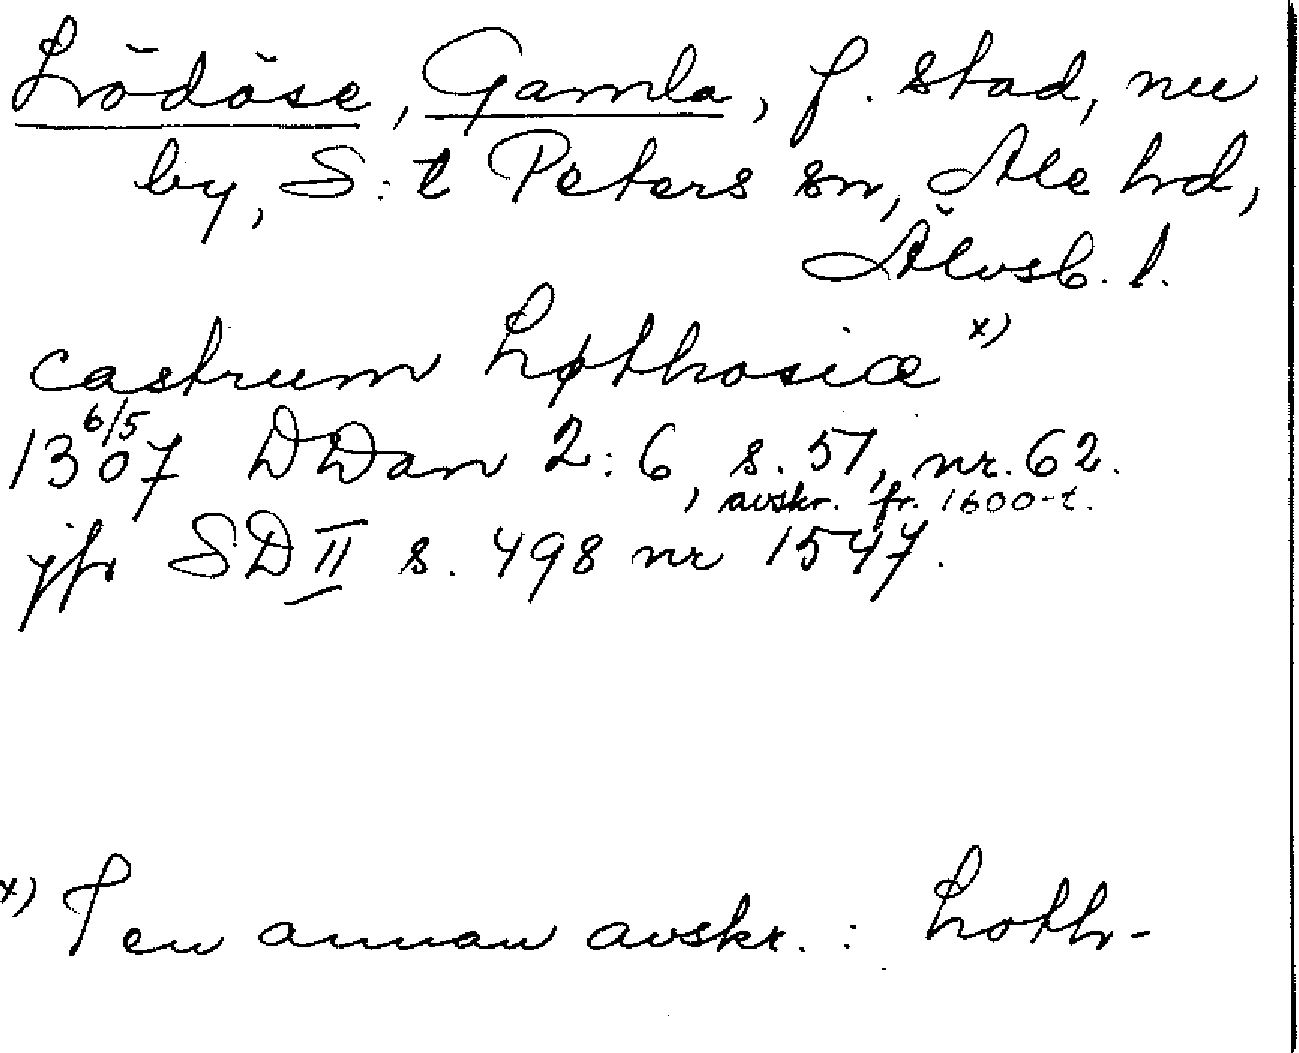 Lödöse, Gamla, f. stad, nu
by, S:t Peters sn, Ale hd,
Älvsb. l.
castrum Løthosiæ x)
13 6/5 07 DDan 2:6, s. 51, nr. 62.
, avskr. fr. 1600-t.
jfr SD II s. 498 nr 1547.
x) I en annan avskr.: Loth-